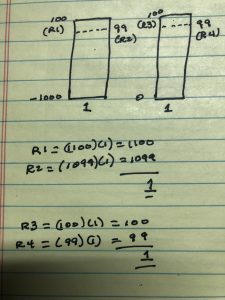 100 100
(R1) 99 (R3) 99
(R2) (R4)
-1000 0
1 1
R1 = (1100)(1) = 1100
R2 = (1099)(1) = 1099
1
R3 = (100)(1) = 100
R4 = (99)(1) = 99
1